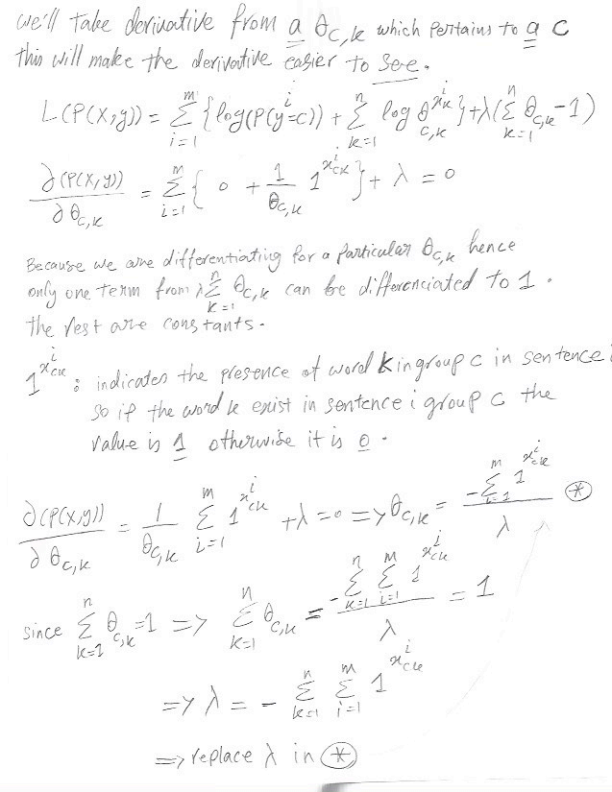 we'll take derivative from a θc,k which pertains to a c
this will make the derivative easier to see.
L(P(x,y)) = Σ_{i=1}^{m} { log(P(y^i=c)) + Σ_{k=1}^{n} log θ_{c,k}^{x_k^i} } + λ(Σ_{k=1}^{n} θ_{c,k} - 1)
∂(P(x,y)) / ∂θ_{c,k} = Σ_{i=1}^{m} { 0 + 1/θ_{c,k} 1^{x_{c,k}^i} } + λ = 0
Because we are differentiating for a particular θc,k hence
only one term from λ Σ_{k=1}^{n} θ_{c,k} can be differenciated to 1.
the rest are constants.
1^{x_{ck}^i} : indicates the presence of word k in group c in sentence i
so if the word k exist in sentence i group c the
value is 1 otherwise it is 0.
∂(P(x,y)) / ∂θ_{c,k} = 1/θ_{c,k} Σ_{i=1}^{m} 1^{x_{ck}^i} + λ = 0 => θ_{c,k} = -Σ_{i=1}^{m} 1^{x_{ck}^i} / λ (*)
since Σ_{k=1}^{n} θ_{c,k} = 1 => Σ_{k=1}^{n} θ_{c,k} = -Σ_{k=1}^{n} Σ_{i=1}^{m} 1^{x_{ck}^i} / λ = 1
=> λ = - Σ_{k=1}^{n} Σ_{i=1}^{m} 1^{x_{ck}^i}
=> replace λ in (*)